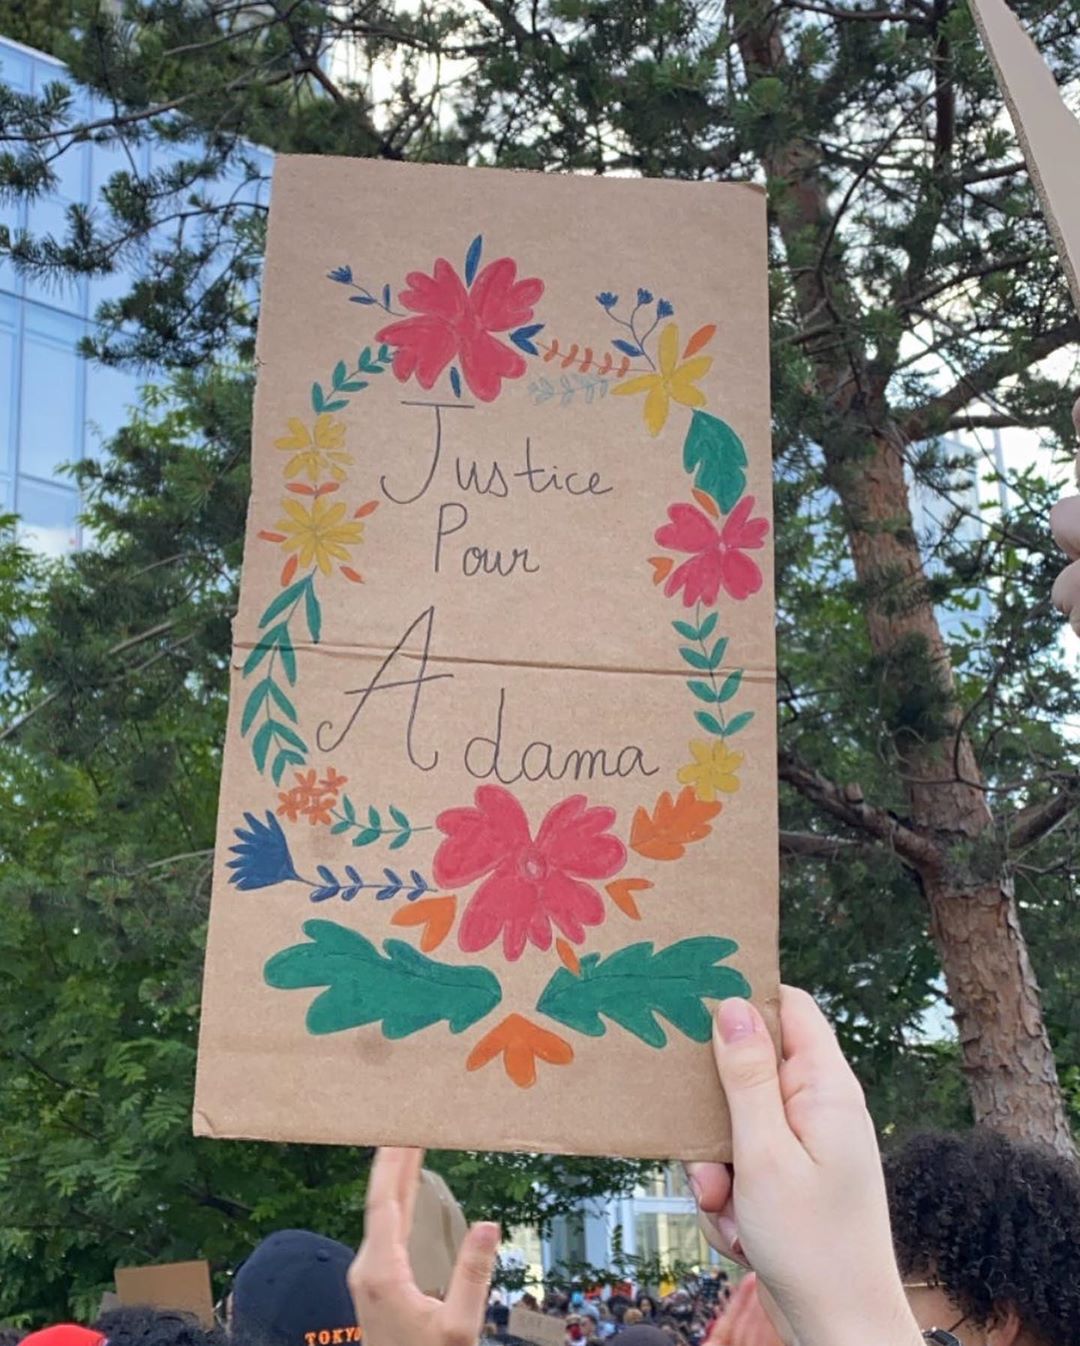 Justice
Pour
Adama
TOKYO